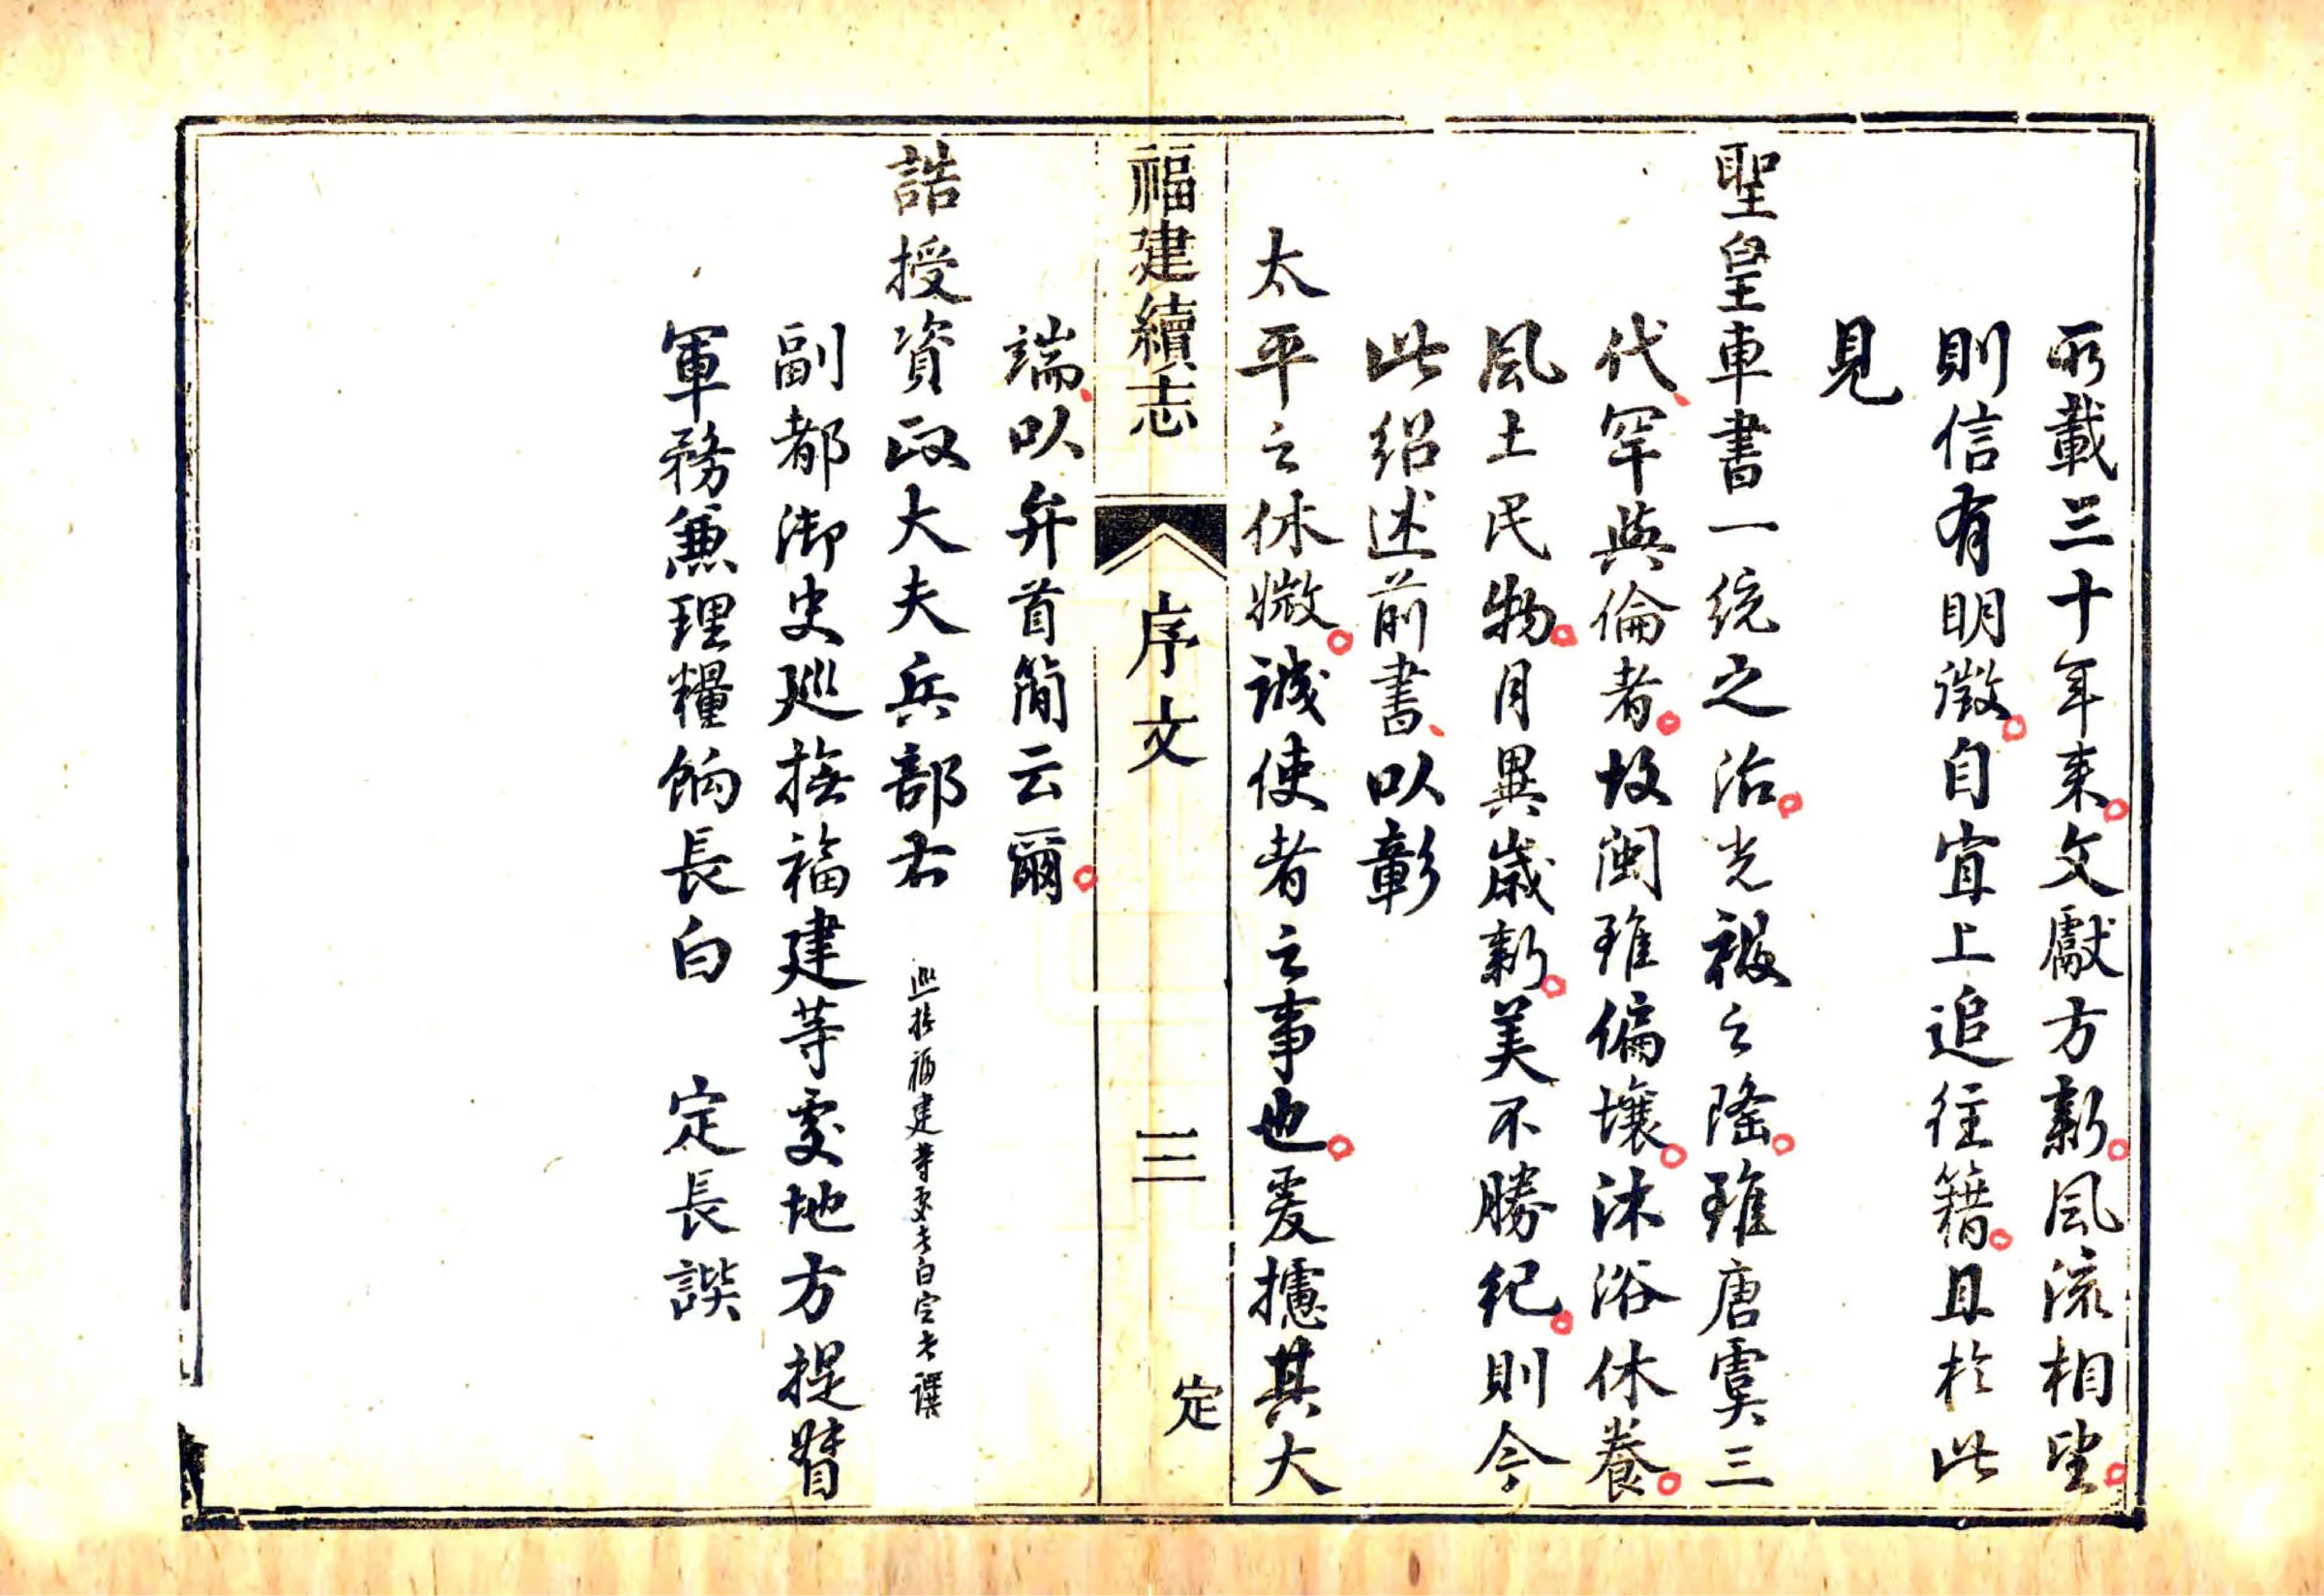 所載三十年来文獻方新風流相望
則信有明徵自宜上追往籍且於此
見
聖皇車書一統之治光被之隆雖唐虞三
代罕與倫者故閩雖偏壤沐浴休養
風土民物月異歲新美不勝紀則今
此紹述前書以彰
太平之休徵誠使者之事也爰攄其大
福建續志
序文
三
定
端以弁首簡云爾
誥授資政大夫兵部右
巡撫福建等處長白定長譔
副都御史廵撫福建等處地方提督
軍務兼理糧餉長白 定長譔